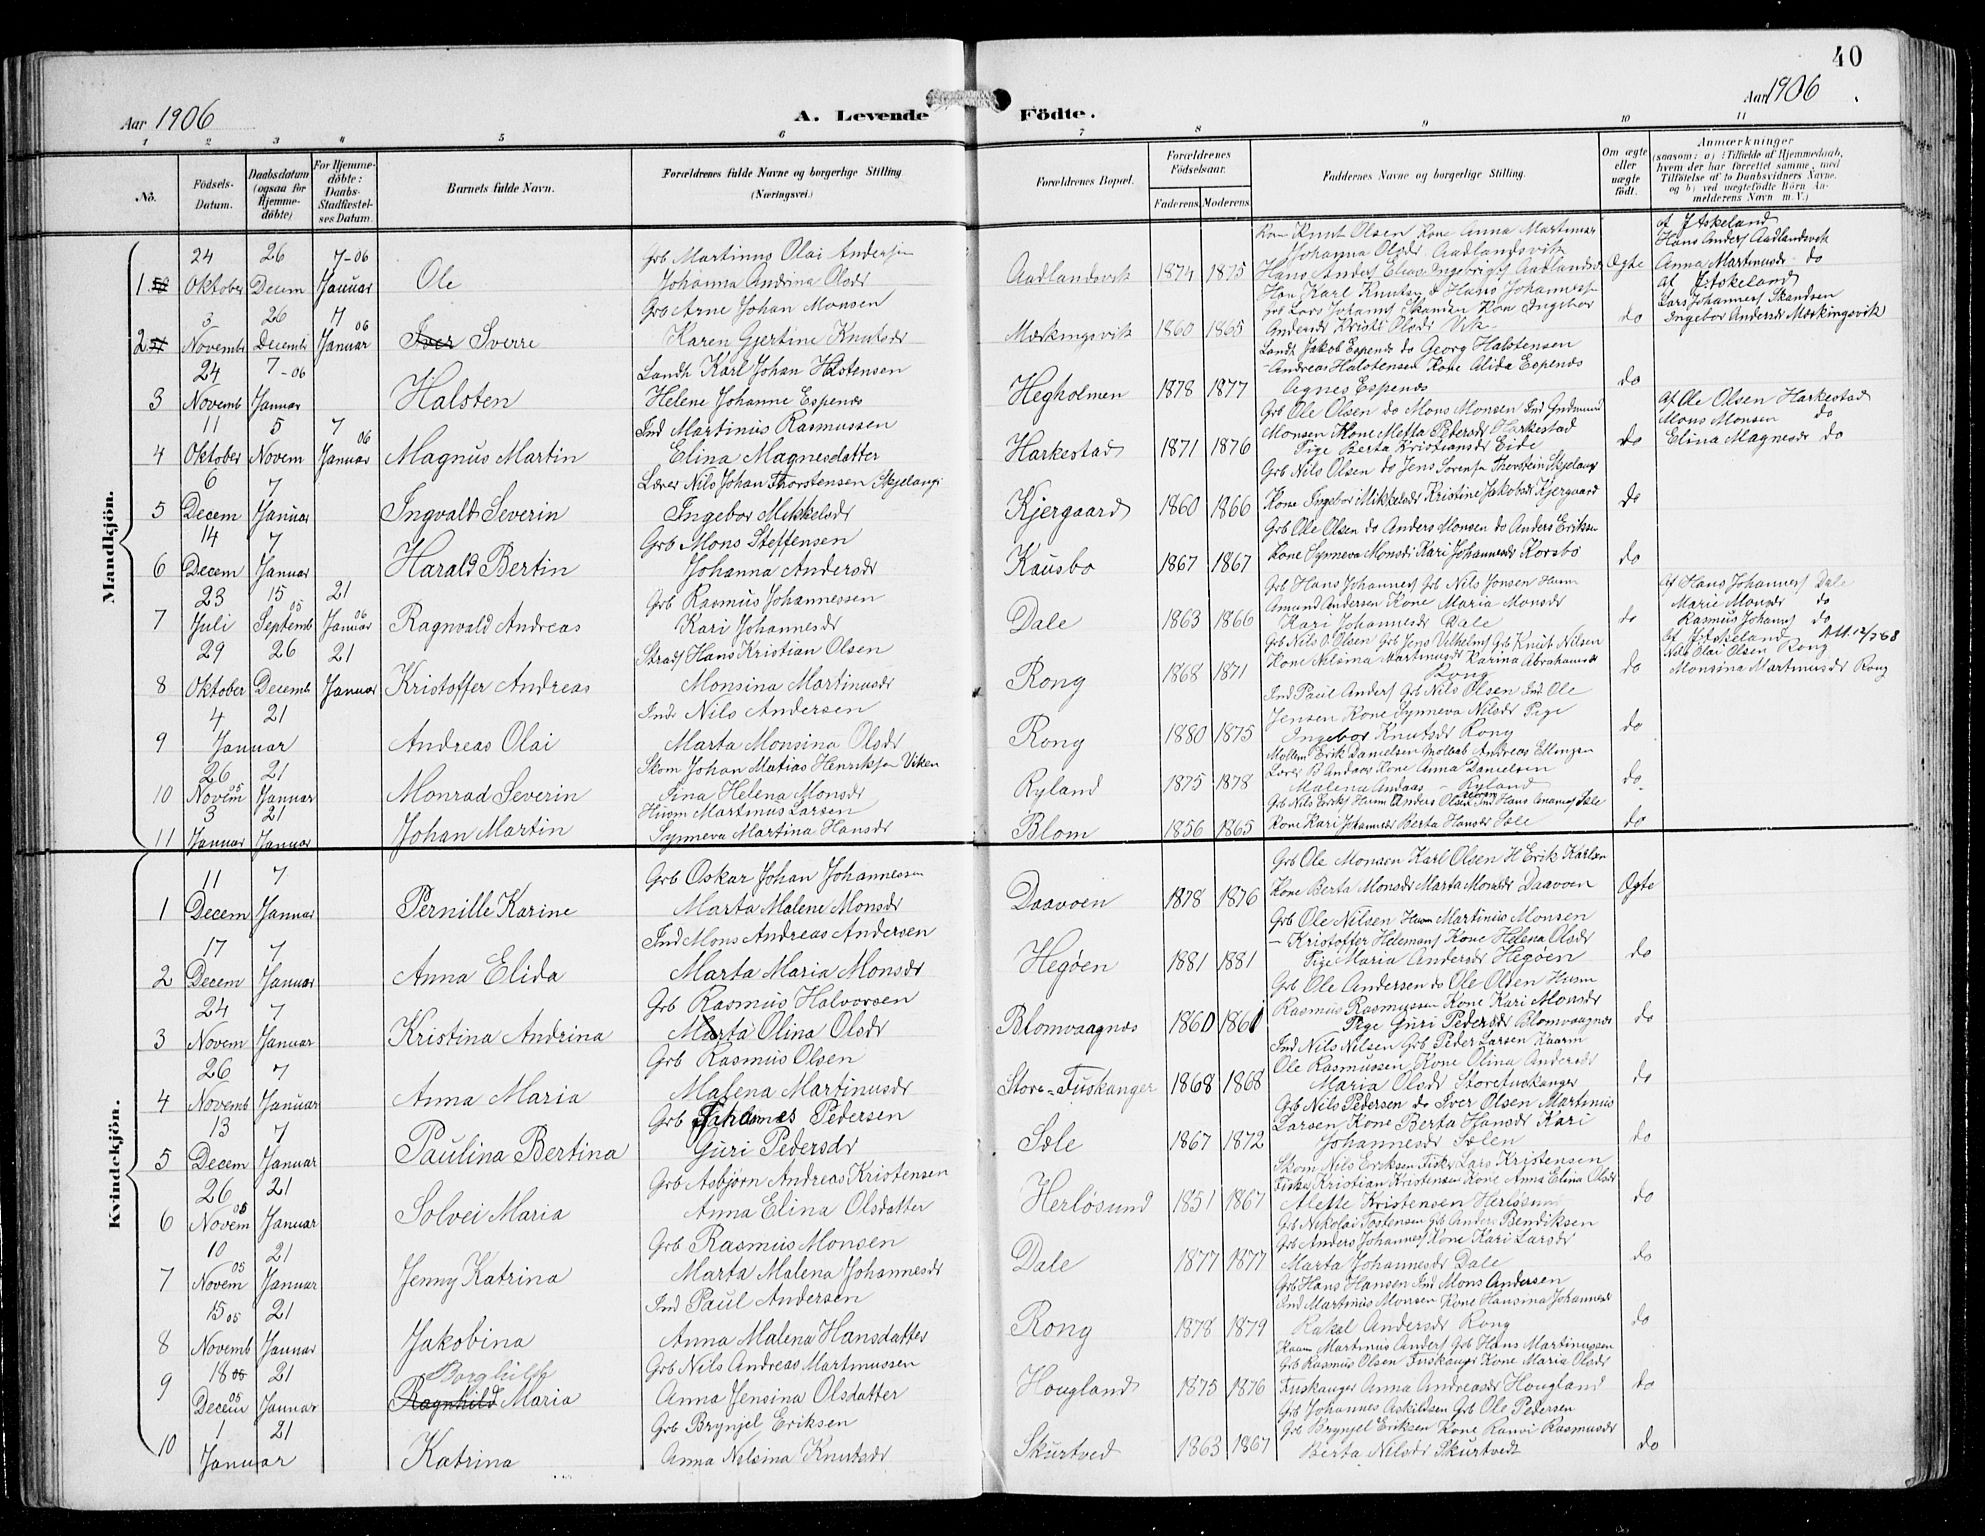 40
Aar 1906 A. Levende Födte. Aar 1906
1 2 3 4 5 6 7 8 9 10 11
No. Födsels-Datum. Daabsdatum (ogsaa for Hjemmedöbte) For Hjemmedöbte: Daabs-Stadfæstelses Datum. Barnets fulde Navn. Forældrenes fulde Navne og borgerlige Stilling (Næringsvei.) Forældrenes Bopæl. Forældrenes Födselsaar. Faderens Moderens Faddernes Navne og borgerlige Stilling. Om ægte eller uægte födt. Anmærkninger (saasom: a) i Tilfælde af Hjemmedaab, hvem der har forrettet samme, med Tilföielse af to Daabsvidners Navne, og b) ved uægtefödte Börn Anmelderens Navn m. V.)
Mandkjön.
1 24 Oktober 26 Decem 7-06 Januar Ole Grb Martinus Olai Andersen Johanna Andrina Olsdr Aadlandsvik 1874 1875 Kone Anna Martinsdr Johanna Olsdr Aadlandsvik Ægte af J Askeland Hans Anders Aadlandsvik Anna Martinusdr do
2 3 Novemb 26 Decemb 7 06 Januar Iver Sverre Grb Arne Johan Monsen Karen Gjertine Knutsdr Mærkingsvik 1860 1865 Karl Knutsen Hans Johannes Kone Ingebor Andersdr Kristi Olsdr Vik do af J Askeland Lars Johannes Skandsen Ingebor Andersdr Mærkingsvik
3 24 Novemb 7-06 Januar Halsten Landh Karl Johan Halstensen Helene Johanne Espenes Hegholmen 1878 1877 Landh Jakob Espenes do Georg Halstensen Andreas Halstensen Kone Alida Espenes Agnes Espenes do
4 11 Oktober 5 Novem 7 06 Januar Magnus Martin Ind Martinus Rasmussen Elina Magnesdatter Harkestad 1871 1876 Grb Ole Olsen do Mons Monsen Ind Gudmund Monsen Kone Metta Pedersdr Harkestad Pige Berta Kristiansdr Eide do af Ole Olsen Harkestad Mons Monsen do Elina Magnesdr do
5 6 Decem 7 Januar Ingvald Severin Lærer Nils Johan Thorstensen Skjelanger Ingebor Mikkelsdr Kjergaard 1860 1866 Grb Nils Olsen do Jens Sorensen Thorstein Skjelanger Kone Ingebor Mikkelsdr Kristine Jakobsdr Kjergaard do
6 14 Decem 7 Januar Harald Bertin Grb Mons Steffensen Johanna Andersdr Kausbo 1867 1867 Grb Ole Olsen do Anders Monsen do Anders Eriksen Kone Synneva Monsdr Kari Johannesdr Korsbo do
7 23 Juli 15 Septemb 05 21 Januar 06 Ragnvald Andreas Grb Rasmus Johannessen Kari Johannesdr Dale 1863 1866 Grb Hans Johannes Grb Nils Jonsen Husm Amund Andersen Kone Maria Monsdr Kari Johannesdr Dale do af Hans Johannes Dale Marie Monsdr do Rasmus Johannes do
8 29 Oktober 26 Decemb 21 Januar Kristoffer Andreas Strads Hans Kristian Olsen Monsina Martinusdr Rong 1868 1871 Grb Nils O. Olsen Grb Jens Vilhelms Grb Knut Nilsen Kone Nilsina Martinusdr Karina Abrahamsdr Rong do af J Askeland Nils Olai Olsen Rong Monsina Martinusdr Rong
9 4 Januar 21 Andreas Olai Ind Nils Andersen Marta Monsina Olsdr Rong 1880 1875 Ind Paul Anders Grb Nils Olsen Ind Ole Jensen Kone Synneva Nilsdr Pige Ingebor Knutsdr Rong do
10 26 Novem 05 21 Januar Monrad Severin Skom Johan Matias Henriksen Viken Sina Helena Monsdr Ryland 1875 1878 Erik Danielsen Andreas Ellingsen Lærer B Andaas Kone Anna Danielsen Malena Andaas Ryland do
11 3 Januar 21 Januar Johan Martin Husm Martinus Larsen Synneva Martina Hansdr Blom 1856 1865 Grb Nils Eriks Husm Anders Olsen Ind Hans Sæle Kone Kari Johannesdr Berta Hansdr Sæle do
Kvindekjön.
1 11 Decem 7 Januar Pernille Karine Grb Oskar Johan Johannessen Marta Malene Monsdr Daavøen 1878 1876 Grb Ole Monsen Karl Olsen H Erik Karlsen Kone Berta Monsdr Marta Monsdr Daavøen Ægte
2 17 Decem 7 Januar Anna Elida Ind Mons Andreas Andersen Marta Maria Monsdr Hegøen 1881 1881 Grb Ole Nilsen Husm Martinius Monsen Kristoffer Helemans Kone Helena Olsdr Pige Maria Andersdr Hegøen do
3 24 Novem 7 Januar Kristina Andrina Grb Rasmus Halvorsen Marta Olina Olsdr Blomvaagnæs 1860 1861 Grb Ole Andersen do Ole Olsen Husm Rasmus Rasmussen Kone Kari Monsdr Pige Guri Pedersdr Blomvaagnæs do
4 26 Novemb 7 Januar Anna Maria Grb Rasmus Olsen Malena Martinusdr Store-Fuskanger 1868 1868 Ind Nils Nilsen Grb Peder Larsen Ole Rasmussen Kone Olina Andersdr Maria Olsdr Storefuskanger do
5 13 Decem 7 Januar Paulina Bertina Grb Johannes Pedersen Guri Pedersdr Sæle 1867 1872 Grb Nils Pedersen do Iver Olsen Martinus Larsen Kone Berta Hansdr Kari Johannesdr Sælen do
6 26 Novem 05 21 Januar Solvei Maria Grb Asbjørn Andreas Kristensen Anna Elina Olsdatter Herløsund 1851 1867 Skom Nils Eriksen Fisker Lars Kristensen Fisker Kristian Kristensen Kone Anna Elina Olsdr Alette Kristensen Herløsund do
7 10 Novem 05 21 Januar Jenny Katrina Grb Rasmus Monsen Marta Malena Johannesdr Dale 1877 1877 Grb Nikolai Tostensen Grb Anders Bendiksen Grb Anders Johannes Kone Kari Larsdr Marta Johannesdr Dale do
8 15 05 Novemb 21 Januar Jakobina Ind Paul Andersen Anna Malena Hansdatter Rong 1878 1879 Grb Hans Hansen Ind Mons Andersen Ind Martinus Monsen Kone Hansina Johannesdr Rakel Andersdr Rong do
9 18 05 Decem 21 Januar Borghild Ragnhild Maria Grb Nils Andreas Martinussen Anna Jensina Olsdatter Hougland 1875 1876 Husm Martinus Anders Grb Hans Martinussen Grb Rasmus Olsen Fuskanger Kone Maria Olsdr Fuskanger Anna Andreasdr Hougland do
10 1 Januar 21 Katrina Grb Brynjel Eriksen Anna Nilsina Knutsdr Skurtved 1863 1867 Grb Johannes Askildsen Grb Ole Pedersen Grb Brynjel Eriksen Kone Ranvi Rasmusdr Berta Nilsdr Skurtvedt do